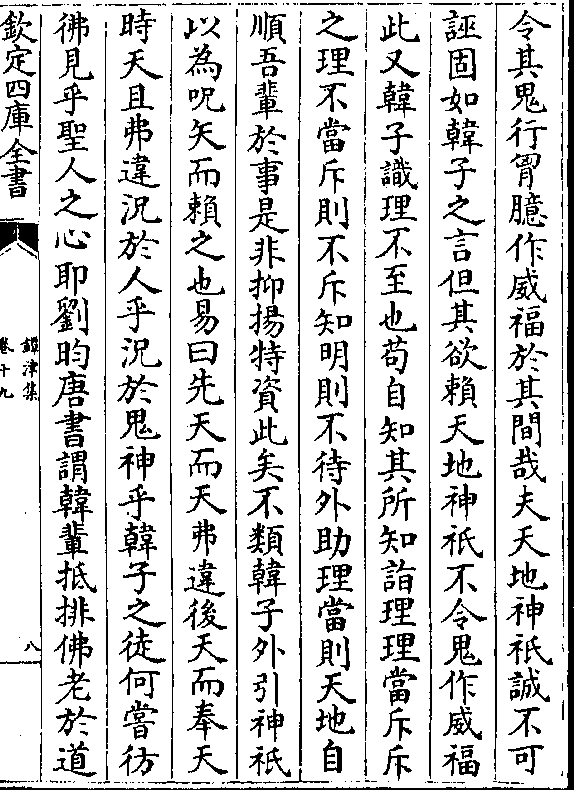 令其鬼行胷臆作威福於其間哉夫天地神祇誠不可
誣固如韓子之言但其欲賴天地神祇不令鬼作威福
此又韓子識理不至也苟自知其所知詣理理當斥斥
之理不當斥則不斥知明則不待外助理當則天地自
順吾輩於事是非抑揚特資此矣不類韓子外引神祇
以為呪矢而賴之也易曰先天而天弗違後天而奉天
時天且弗違況於人乎況於鬼神乎韓子之徒何嘗彷
彿見乎聖人之心耶劉昫唐書謂韓輩抵排佛老於道
欽定四庫全書
鐔津集
卷十九
八